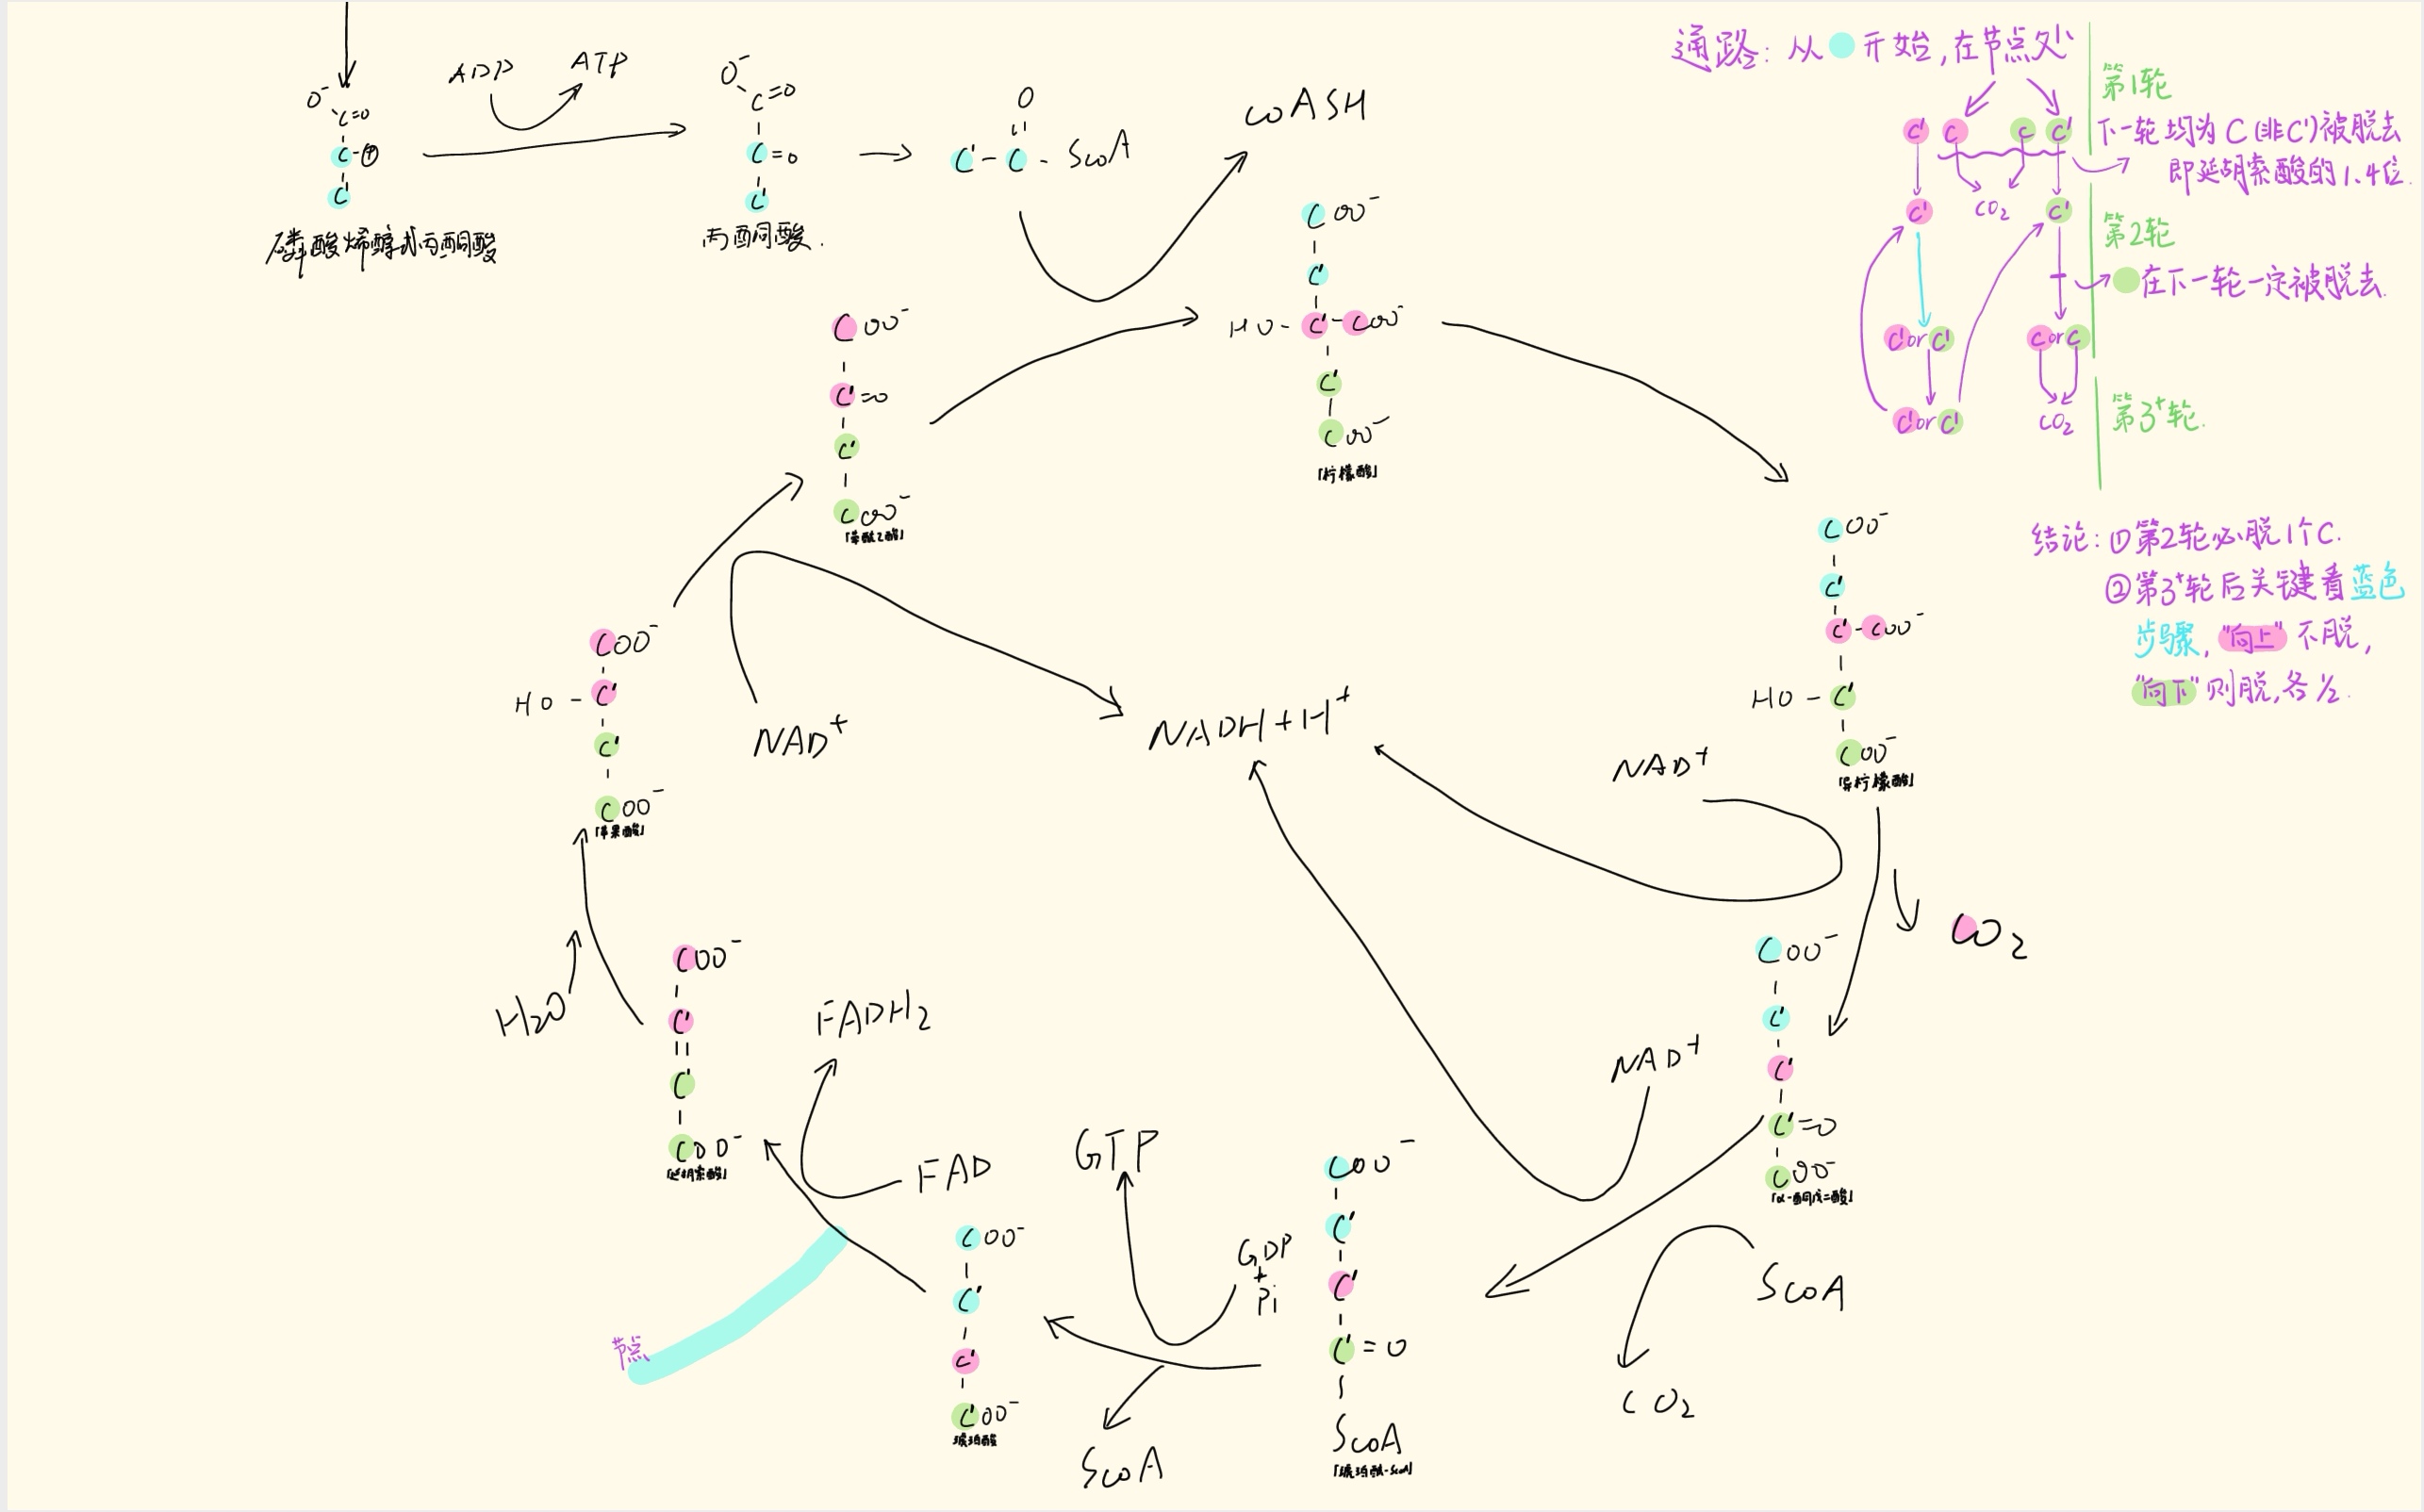 ADP
ATP
O⁻
C=O
C-Ⓟ
C'
磷酸烯醇式丙酮酸
O⁻
C=O
C=O
C'
丙酮酸.
O
C'-C-ScoA
coASH
COO⁻
C'
HO-C'-COO⁻
C'
COO⁻
「柠檬酸」
COO⁻
C'=O
C'
COO⁻
「草酰乙酸」
COO⁻
C'
C'-COO⁻
HO-C'
COO⁻
「异柠檬酸」
NAD⁺
CO₂
COO⁻
HO-C'
C'
COO⁻
「苹果酸」
NAD⁺
NADH+H⁺
COO⁻
C'
C'
C'=O
COO⁻
「α-酮戊二酸」
NAD⁺
ScoA
CO₂
COO⁻
C'
C'
C'=O
ScoA
「琥珀酰-ScoA」
GTP
GDP
+
Pi
ScoA
COO⁻
C'
C'
C'OO⁻
琥珀酸
FAD
FADH₂
节点
COO⁻
C'
C'
COO⁻
「延胡索酸」
H₂O
通路: 从 开始,在节点处
第1轮
C' C C C' 下一轮均为C(非C')被脱去
即延胡索酸的1.4位.
C' CO₂ C'
第2轮
在下一轮一定被脱去.
C'orC' CorC
C'orC' CO₂
第3⁺轮.
结论: ①第2轮必脱1个C.
②第3⁺轮后关键看蓝色
步骤, "向上"不脱,
"向下"则脱,各½.